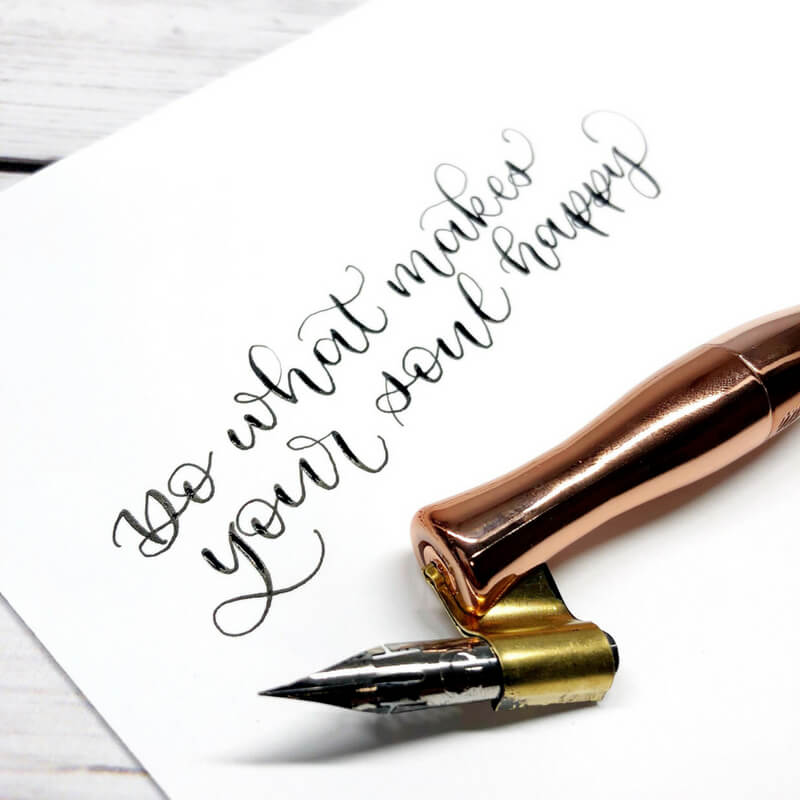 Do what makes
your soul happy